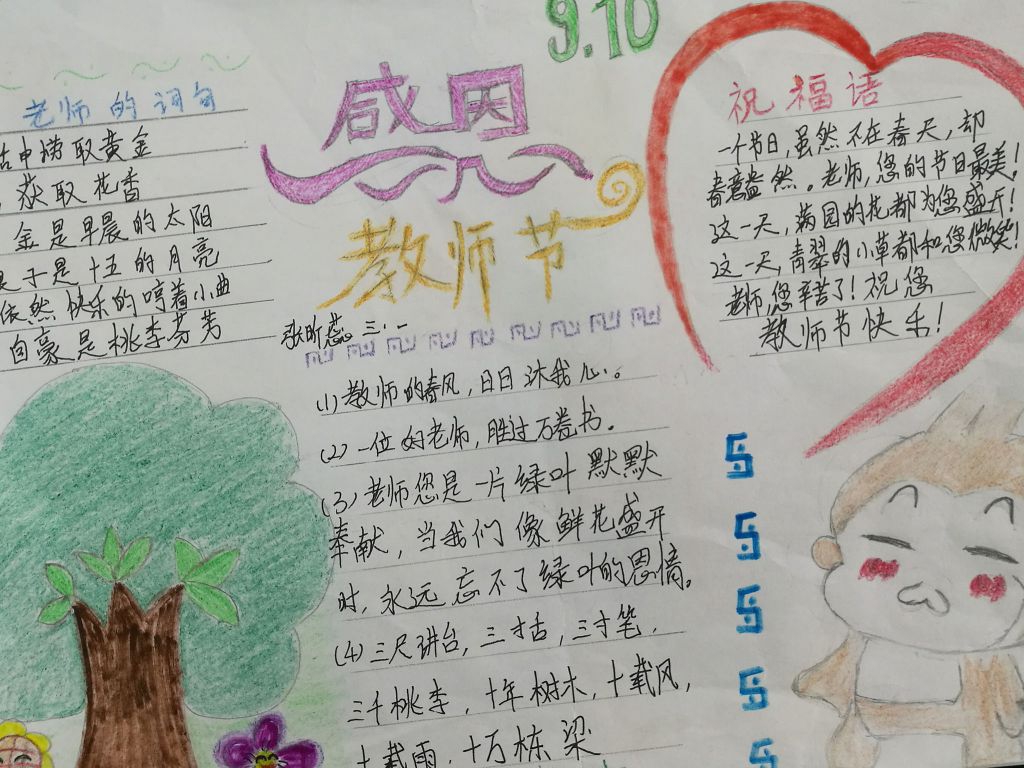 9.10
感恩
教师节
老师的词句
中捞取黄金
获取花香
金是早晨的太阳
子是十五的月亮
依然快乐的哼着小曲
自豪是桃李芬芳
张昕蕊 三.一
(1)教师的春风,日日沐我心。
(2)一位好老师,胜过万卷书。
(3)老师您是一片绿叶 默默
奉献,当我们像鲜花盛开
时,永远忘不了绿叶的恩情。
(4)三尺讲台,三寸舌,三寸笔,
三千桃李,十年树木,十载风,
十载雨,十万栋梁
祝福语
一个节日,虽然不在春天,却
春意盎然。老师,您的节日最美!
这一天,满园的花都为您盛开!
这一天,青翠的小草都和您微笑!
老师,您辛苦了!祝您
教师节快乐!